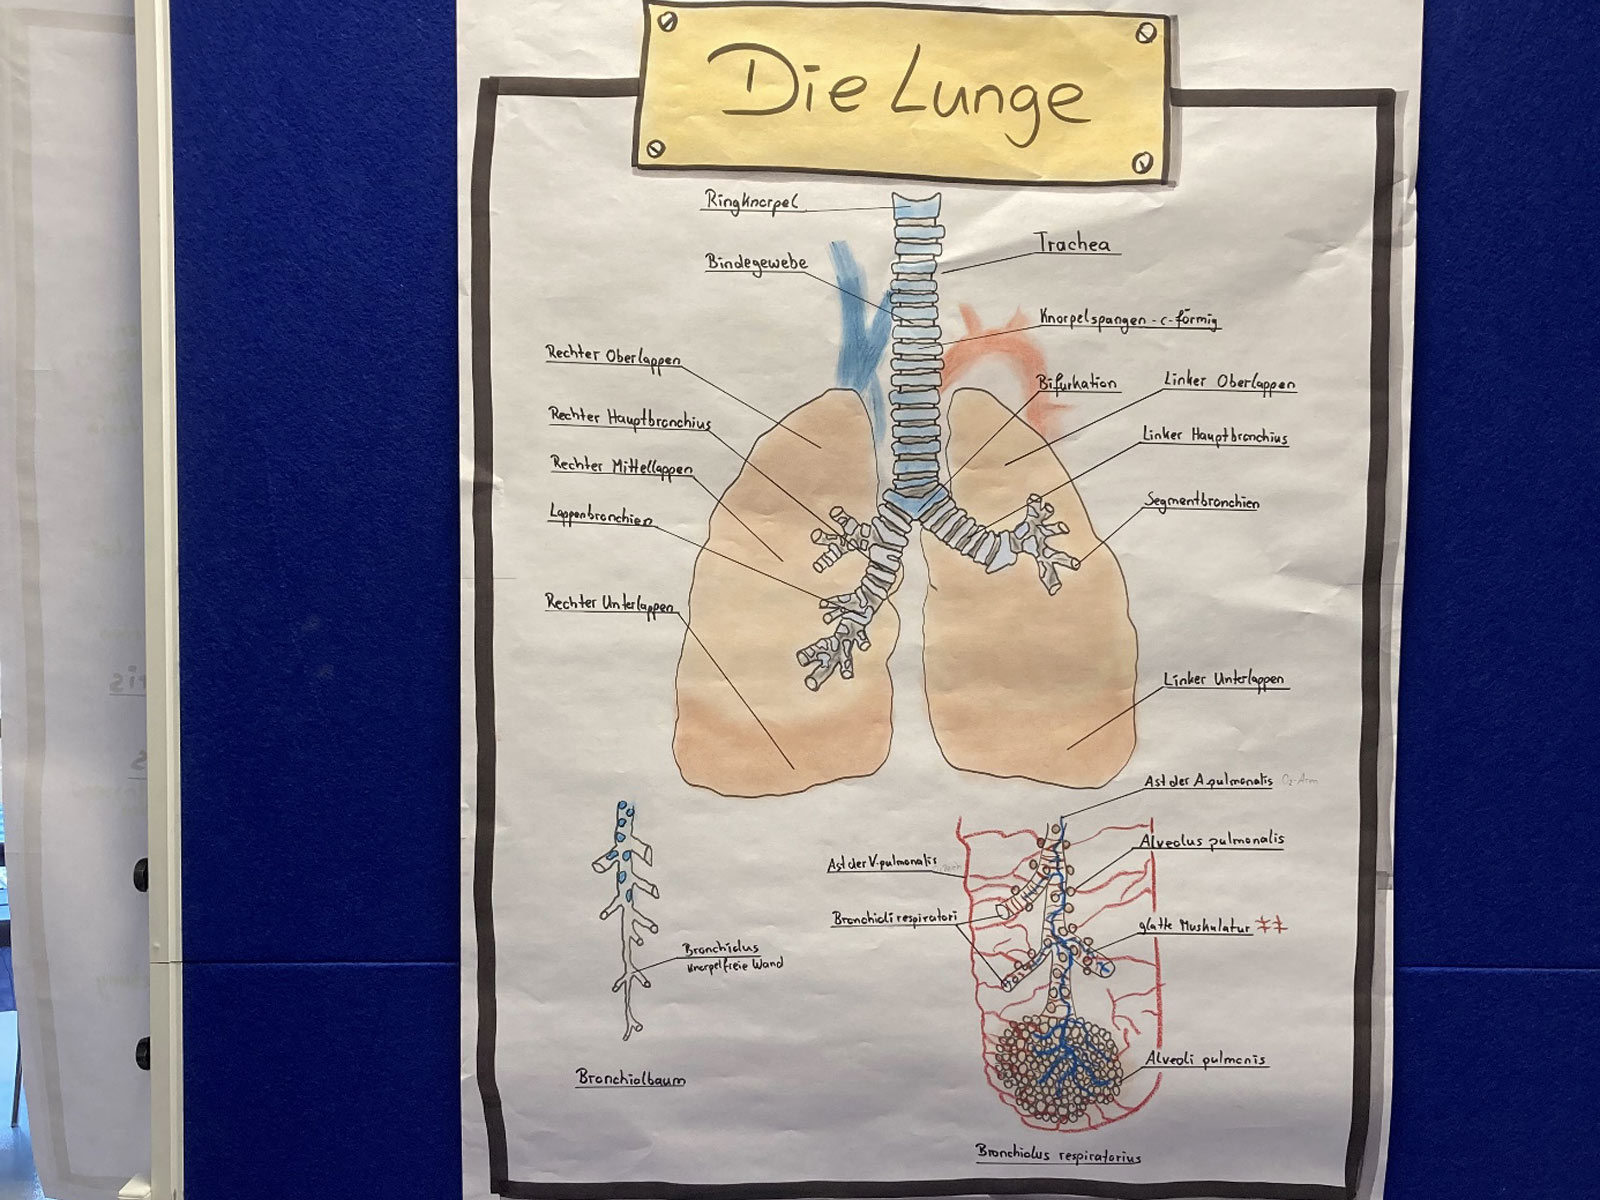 Die Lunge
Ringknorpel
Trachea
Bindegewebe
Knorpelspangen - c-förmig
Rechter Oberlappen
Bifurkation
Linker Oberlappen
Rechter Hauptbronchius
Linker Hauptbronchius
Rechter Mittellappen
Segmentbronchien
Lappenbronchien
Rechter Unterlappen
Linker Unterlappen
Ast der A.pulmonalis
Alveolus pulmonalis
Ast der V.pulmonalis
Bronchioli respiratori
glatte Muskulatur
Bronchiolus
knorpelfreie Wand
Alveoli pulmonis
Bronchialbaum
Bronchiolus respiratorius